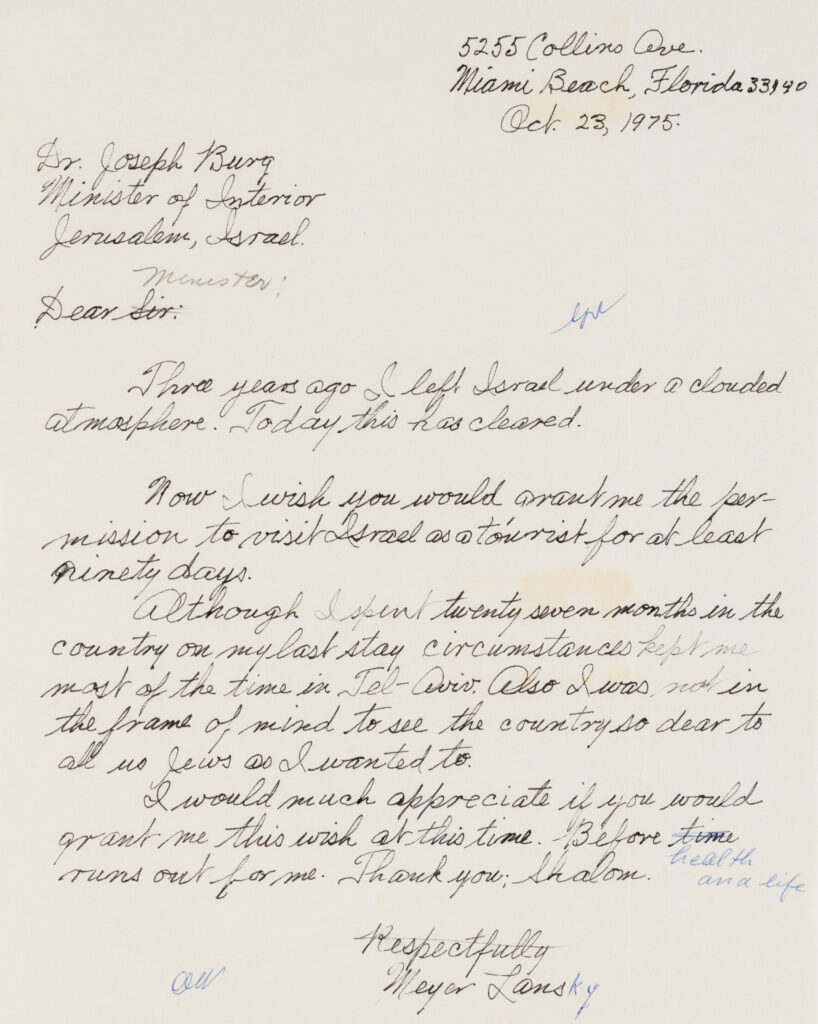 5255 Collins Ave.
Miami Beach, Florida 33140
Oct. 23, 1975.
Dr. Joseph Burg
Minister of Interior
Jerusalem, Israel.
Minister:
Dear Sir:
Three years ago I left Israel under a clouded
atmosphere. Today this has cleared.
Now I wish you would grant me the per-
mission to visit Israel as a tourist for at least
ninety days.
Although I spent twenty seven months in the
country on my last stay circumstances kept me
most of the time in Tel-Aviv. Also I was not in
the frame of mind to see the country so dear to
all us Jews as I wanted to.
I would much appreciate if you would
grant me this wish at this time. Before time
health
and life
runs out for me. Thank you; Shalom.
Respectfully
Meyer Lansky